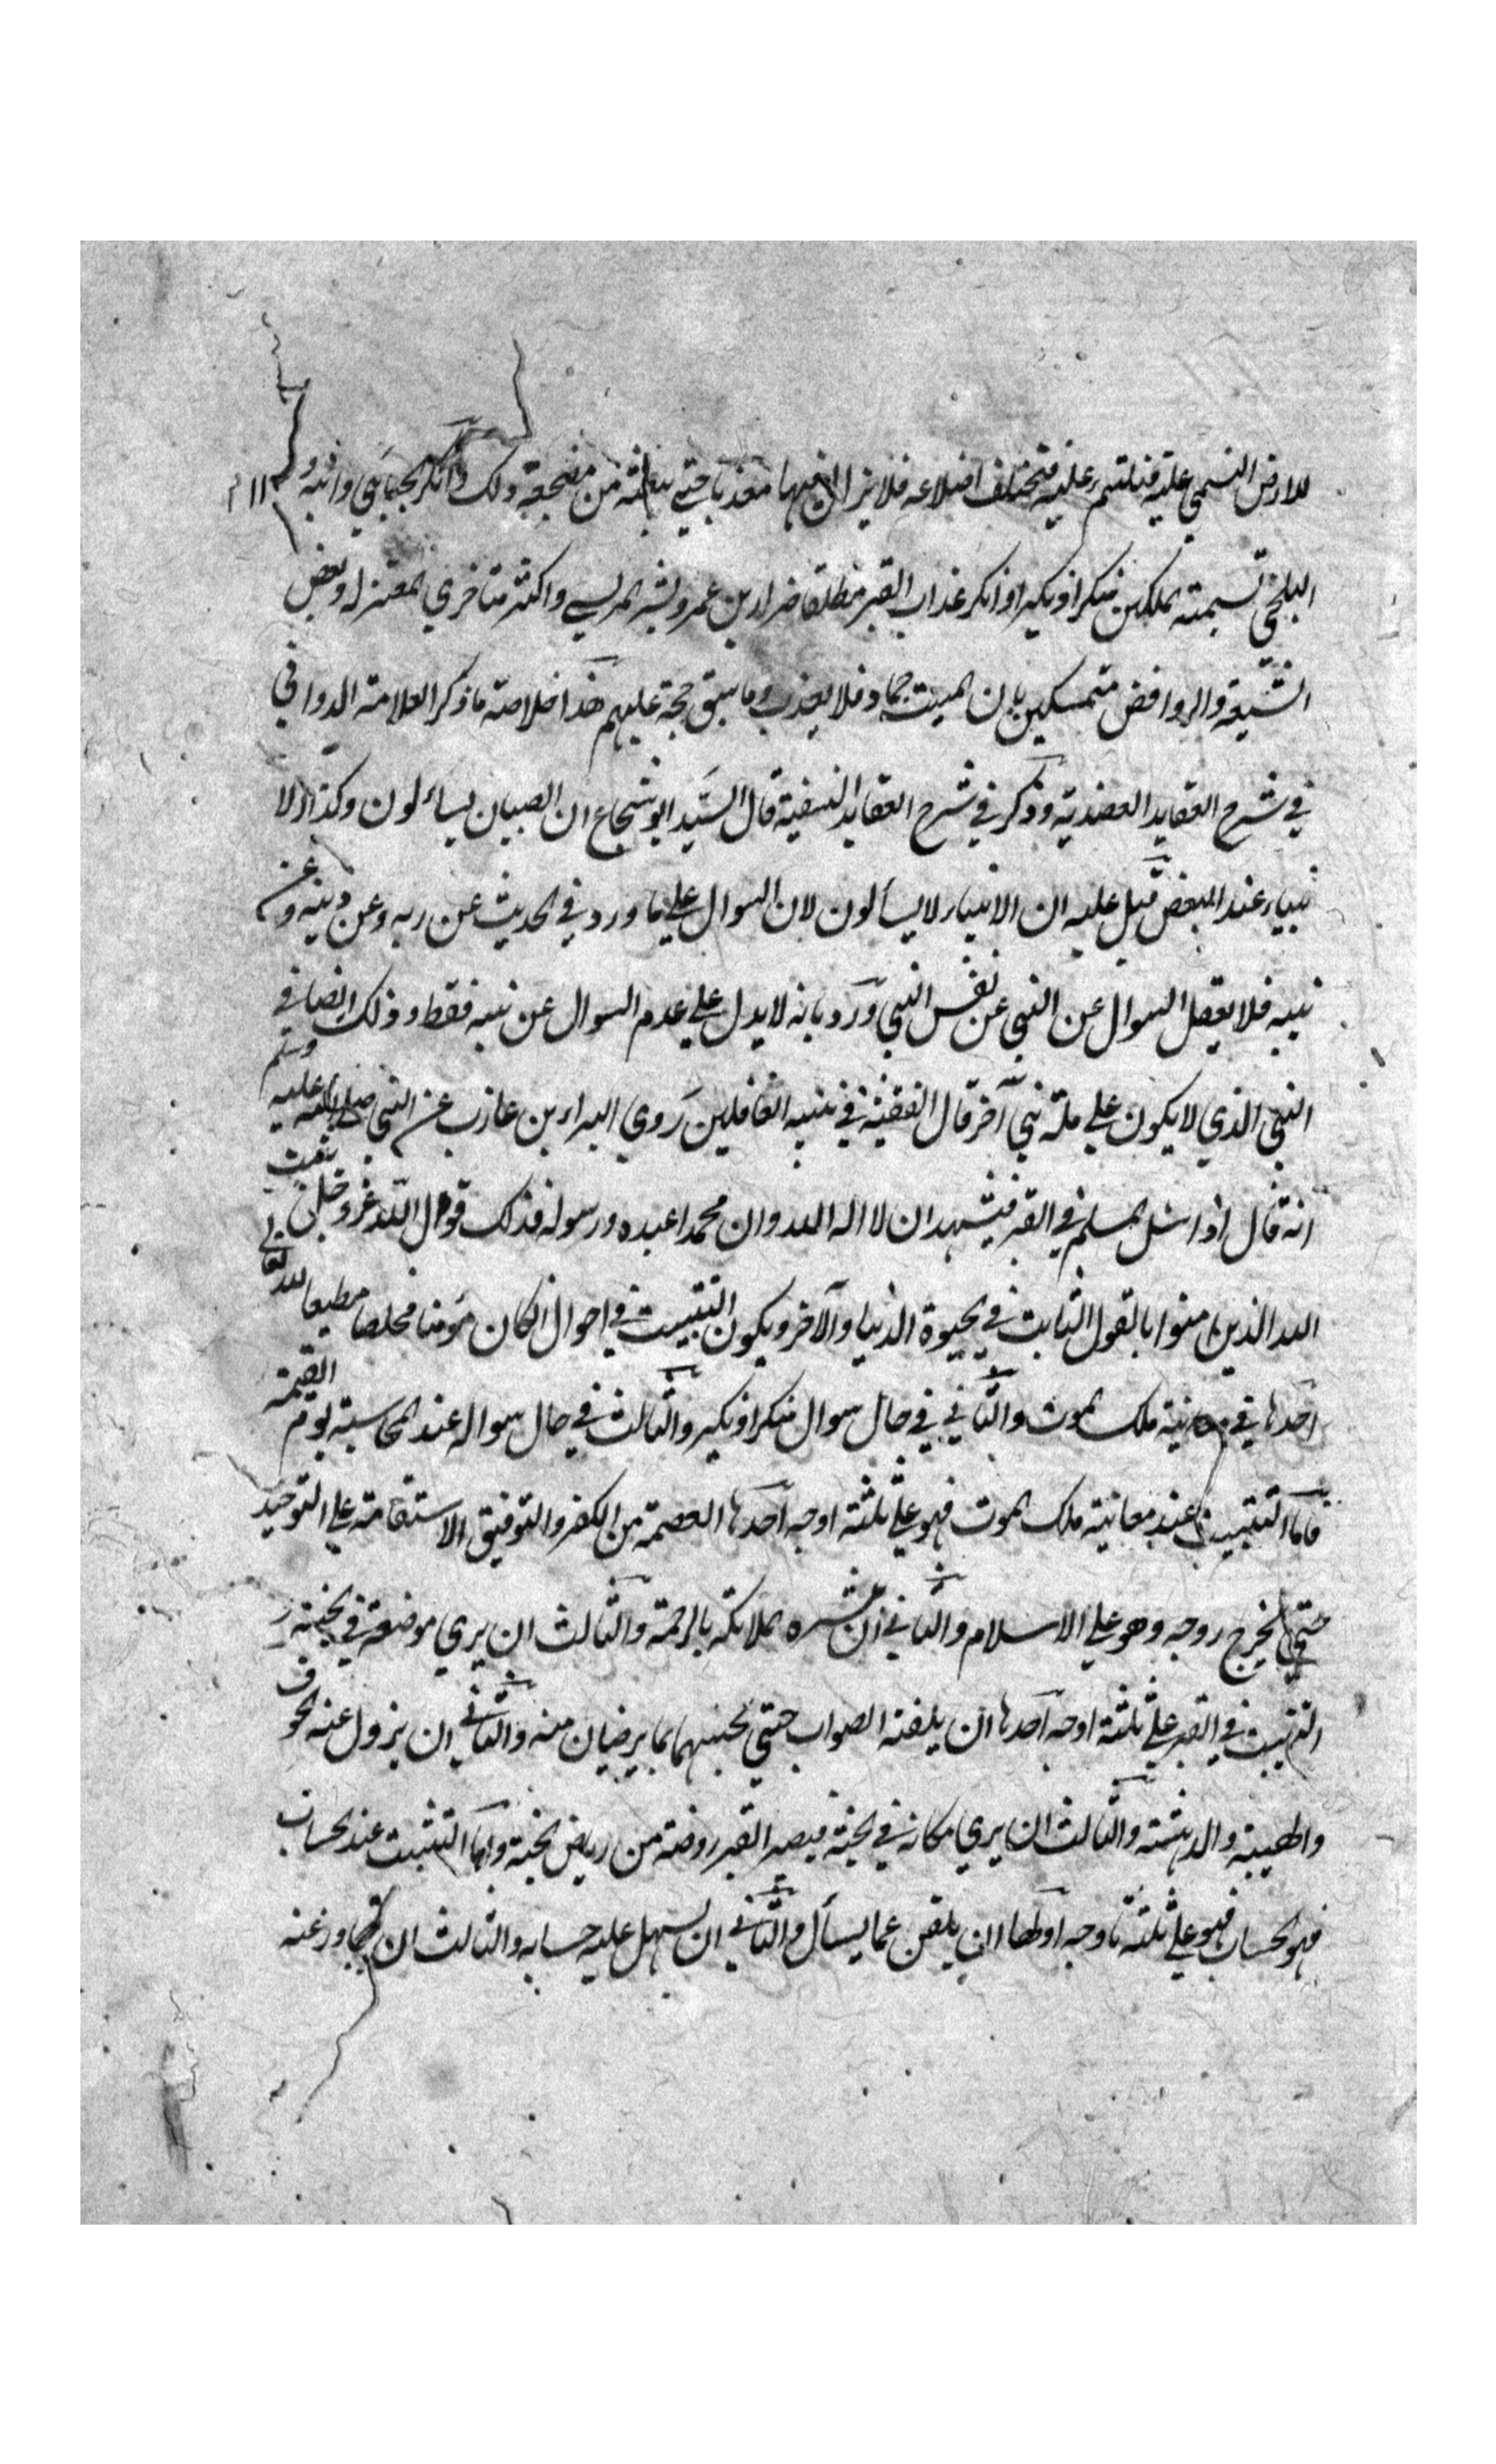 للارض التئمي عليه فتلتئم عليه فتختلف اضلاعه فلا يزال فيها معذبا حتي يبعثه من مضجعه ذلك وانكر الجبائي وابنه و
البلخي تسمية الملكين منكرا ونكيرا وانكر عذاب القبر مطلقا ضرار بن عمرو وبشر المريسي واكثر متاخري المعتزلة وبعض
الشيعة والروافض متمسكين بان الميت جماد فلا يعذب وما سبق حجة عليهم هذا خلاصة ما ذكر العلامة الدواني
في شرح العقايد العضدية وذكر في شرح العقايد النسفية قال السيد ابو شجاع ان الصبيان يسائلون وكذا الا
نبياء عند البعض قيل عليه ان الانبياء لا يسألون لان السوال علي ما ورد في الحديث عن ربه وعن دينه وعن
نبيه فلا يعقل السوال عن النبي عن نفس النبي ورد بانه لا يدل علي عدم السوال عن نبيه فقط وذلك ايضا في
النبي الذي لا يكون علي ملة نبي آخر قال الفقيه في تنبيه الغافلين روي البراء بن عازب عن النبي صلي الله عليه وسلم
انه قال اذا سئل المسلم في القبر فيشهد ان لا اله الا الله وان محمدا عبده ورسوله فذلك قوله قال الله عز وجل يثبت
الله الذين امنوا بالقول الثابت في الحيوة الدنيا والآخر ويكون التثبيت في احوال لكان مؤمنا مخلصا مطيعا لله تعالي
احدها في معاينة ملك الموت والثاني في حال سوال منكرا ونكير والثالث في حال سواله عند المحاسبة يوم القيمة
فاما التثبيت عند معاينة ملك الموت فهو علي ثلثة اوجه احدها العصمة من الكفر والتوفيق الاستقامة علي التوحيد
حتي يخرج روحه وهو علي الاسلام والثاني ان تبشره الملائكة بالرحمة والثالث ان يري موضعه في الجنة و
التثبيت في القبر علي ثلثة اوجه احدها ان يلقنه الصواب حتي يجيبهما بما يرضيان منه والثاني ان يزول عنه الخوف
والهيبة والدهشة والثالث ان يري مكانه في الجنة فيصير القبر روضة من رياض الجنة واما التثبيت عند الحساب
فهو الحساب فهو علي ثلثة اوجه اولها ان يلقن عما يسأل والثاني ان يسهل عليه حسابه والثالث ان يتجاوز عنه